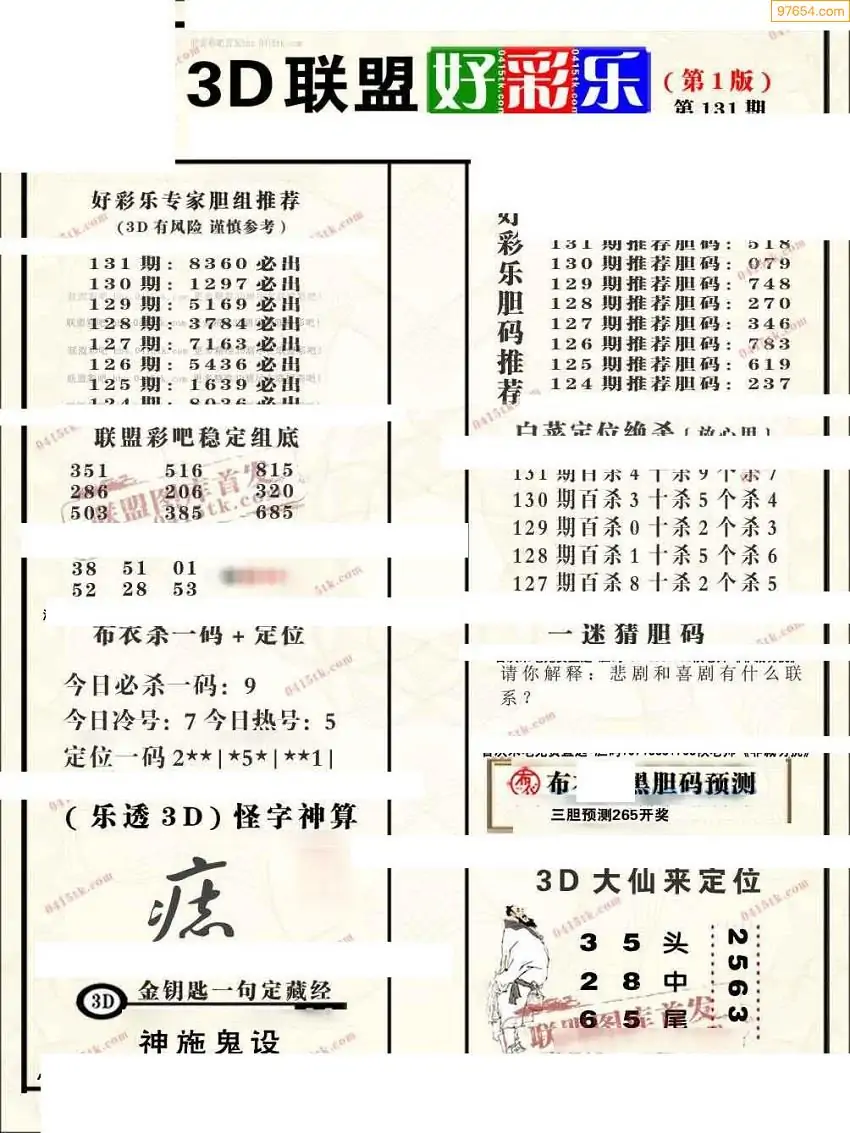 97654.com
3D联盟好彩乐
(第1版)
第131期
好彩乐专家胆组推荐
(3D有风险 谨慎参考)
131期: 8360必出
130期: 1297必出
129期: 5169必出
128期: 3784必出
127期: 7163必出
126期: 5436必出
125期: 1639必出
124期: 8036必出
联盟彩吧稳定组底
351 516 815
286 206 320
503 385 685
38 51 01
52 28 53
布衣杀一码+定位
今日必杀一码: 9
今日冷号: 7 今日热号: 5
定位一码 2**|*5*|**1|
(乐透3D)怪字神算
痣
3D 金钥匙一句定藏经
神施鬼设
好彩乐胆码推荐
131期推荐胆码: 518
130期推荐胆码: 079
129期推荐胆码: 748
128期推荐胆码: 270
127期推荐胆码: 346
126期推荐胆码: 783
125期推荐胆码: 619
124期推荐胆码: 237
白菜定位绝杀[放心用]
131期百杀4十杀9个杀7
130期百杀3十杀5个杀4
129期百杀0十杀2个杀3
128期百杀1十杀5个杀6
127期百杀8十杀2个杀5
一迷猜胆码
请你解释: 悲剧和喜剧有什么联
系?
布 黑胆码预测
三胆预测265开奖
3D大仙来定位
3 5 头
2 8 中
6 5 尾
2563
联盟图库首发
0415tk.com